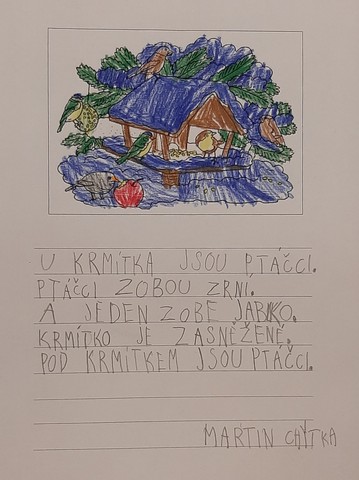 U KRMÍTKA JSOU PTÁČCI.
PTÁČCI ZOBOU ZRNÍ.
A JEDEN ZOBE JABLKO.
KRMÍTKO JE ZASNĚŽENÉ.
POD KRMÍTKEM JSOU PTÁČCI.
MARTIN CHYTKA